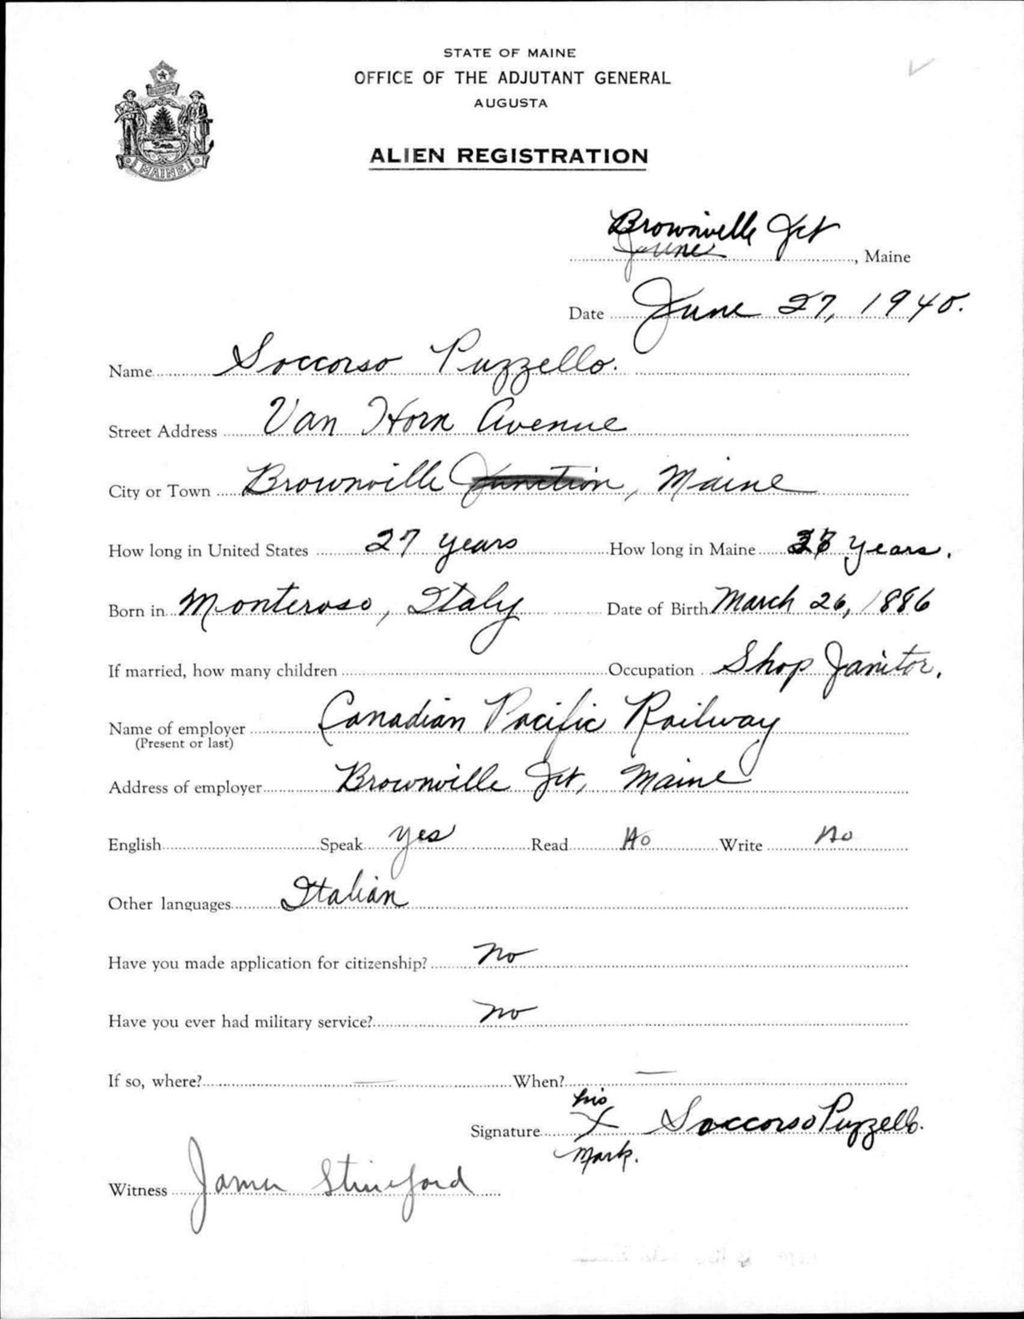 STATE OF MAINE
OFFICE OF THE ADJUTANT GENERAL
AUGUSTA
ALIEN REGISTRATION
MAINE
Brownville Jct
June, Maine
Date June 27, 1940.
Name Soccorso Puzzello.
Street Address Van Horn Avenue
City or Town Brownville Junction, Maine
How long in United States 27 years How long in Maine years.
Born in Monteroso, Italy Date of Birth March 26, 1886
If married, how many children Occupation Shop Janitor.
Name of employer Canadian Pacific Railway
(Present or last)
Address of employer Brownville Jct, Maine
English Speak Yes Read No Write No
Other languages Italian
Have you made application for citizenship? No
Have you ever had military service? No
If so, where? — When? —
his
Signature X Soccorso Puzzello.
Mark.
Witness James